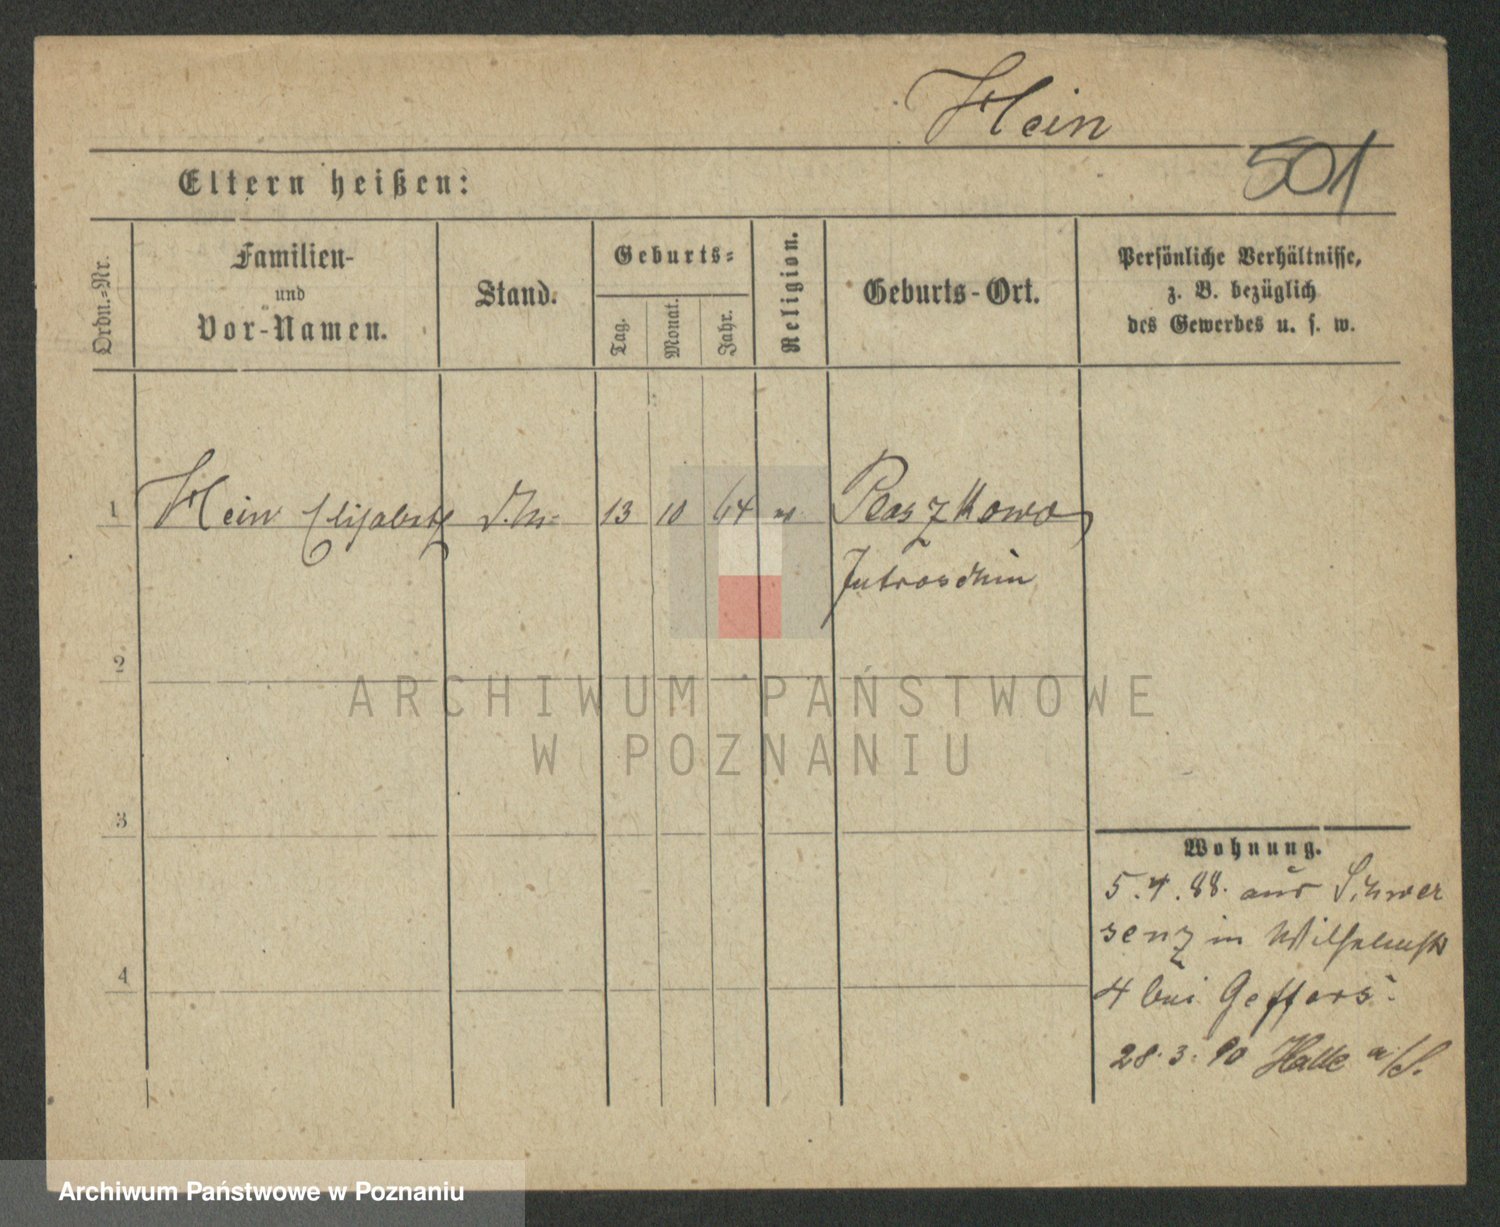 Hein
501
Eltern heißen:
Ordn.-Nr.
Familien-
und
Vor-Namen.
Stand.
Geburts-
Tag.
Monat.
Jahr.
Religion.
Geburts-Ort.
Persönliche Verhältnisse,
z. B. bezüglich
des Gewerbes u. s. w.
1 Hein Elisabeth 13 10 64 Paszkowo
Jutroschin
2
3
4
Wohnung.
5.4.88. aus Schwer
senz in Wilhelmstr
4 bei Geffers.
28.3.90 Halle a/S.
ARCHIWUM PAŃSTWOWE
W POZNANIU
Archiwum Państwowe w Poznaniu